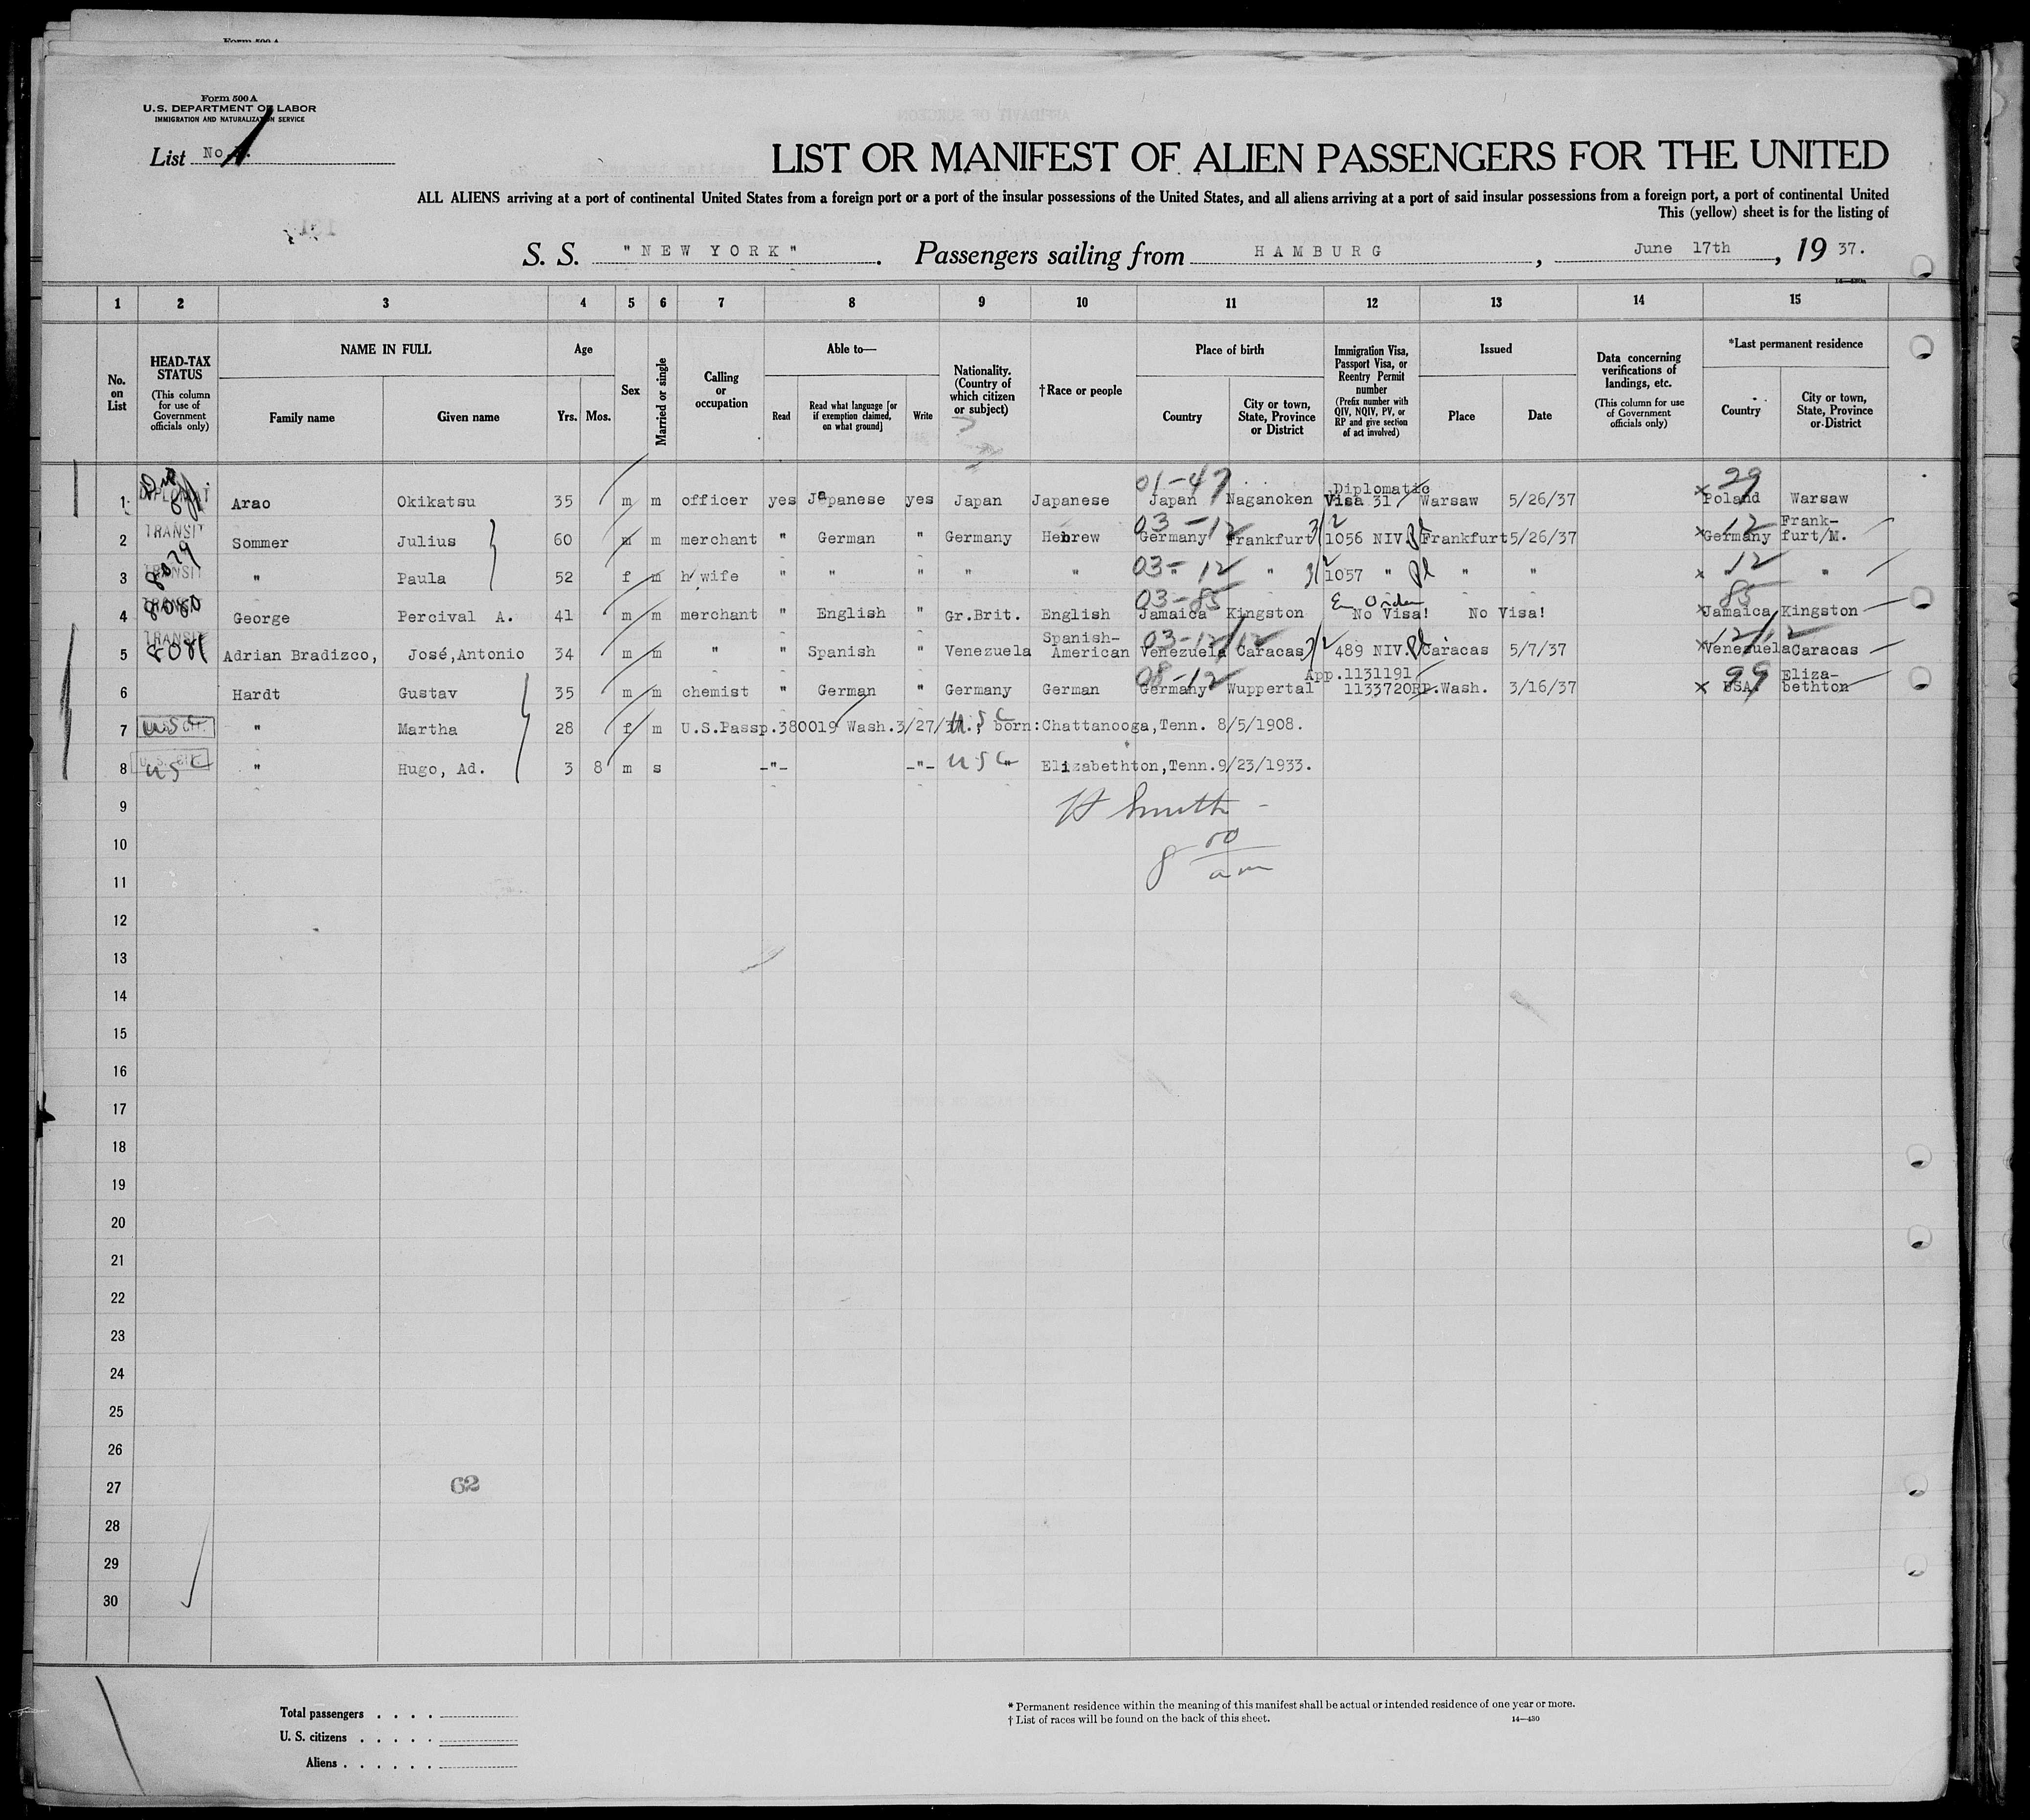 Form 500 A
U.S. DEPARTMENT OF LABOR
IMMIGRATION AND NATURALIZATION SERVICE
List No. 1
LIST OR MANIFEST OF ALIEN PASSENGERS FOR THE UNITED
ALL ALIENS arriving at a port of continental United States from a foreign port or a port of the insular possessions of the United States, and all aliens arriving at a port of said insular possessions from a foreign port, a port of continental United
This (yellow) sheet is for the listing of
S. S. "NEW YORK". Passengers sailing from HAMBURG, June 17th, 1937.
1 2 3 4 5 6 7 8 9 10 11 12 13 14 15
No. on List
HEAD-TAX STATUS
(This column for use of Government officials only)
NAME IN FULL
Family name Given name
Age
Yrs. Mos.
Sex
Married or single
Calling or occupation
Able to—
Read
Read what language [or if exemption claimed, on what ground]
Write
Nationality. (Country of which citizen or subject)
†Race or people
Place of birth
Country
City or town, State, Province or District
Immigration Visa, Passport Visa, or Reentry Permit number
(Prefix number with QIV, NQIV, PV, or RP and give section of act involved)
Issued
Place Date
Data concerning verifications of landings, etc.
(This column for use of Government officials only)
*Last permanent residence
Country
City or town, State, Province or District
01-47 Diplomatic 29
1 DIPLOMAT Arao Okikatsu 35 m m officer yes Japanese yes Japan Japanese Japan Naganoken Visa 31 Warsaw 5/26/37 x Poland Warsaw
TRANSIT 03-12 12 Frank-
2 Sommer Julius 60 m m merchant " German " Germany Hebrew Germany Frankfurt 1056 NIV. Frankfurt 5/26/37 x Germany furt/M.
3 TRANSIT 8079 " Paula 52 f m h/wife " " " " " 03-12 " 1057 " " " x 12 "
TRANSIT 03-85 85
4 8080 George Percival A. 41 m m merchant " English " Gr.Brit. English Jamaica Kingston No Visa! No Visa! x Jamaica Kingston
TRANSIT Spanish- 03-12/12 12/12
5 8081 Adrian Bradizco, José,Antonio 34 m m " " Spanish " Venezuela American Venezuela Caracas 489 NIV. Caracas 5/7/37 x Venezuela Caracas
08-12 App.1131191 99 Eliza-
6 Hardt Gustav 35 m m chemist " German " Germany German Germany Wuppertal 1133720RP. Wash. 3/16/37 x USA. bethton
7 U.S. CIT. USC " Martha 28 f m U.S.Passp.380019 Wash.3/27/37., USC born:Chattanooga,Tenn. 8/5/1908.
8 U.S. CIT. USC " Hugo, Ad. 3 8 m s -"- -"- USC " Elizabethton,Tenn.9/23/1933.
9 H Smith -
10 8 00
11 am
12
13
14
15
16
17
18
19
20
21
22
23
24
25
26
27 62
28
29
30
Total passengers . . . .
U. S. citizens . . . . .
Aliens . . . . . .
* Permanent residence within the meaning of this manifest shall be actual or intended residence of one year or more.
† List of races will be found on the back of this sheet. 14—430